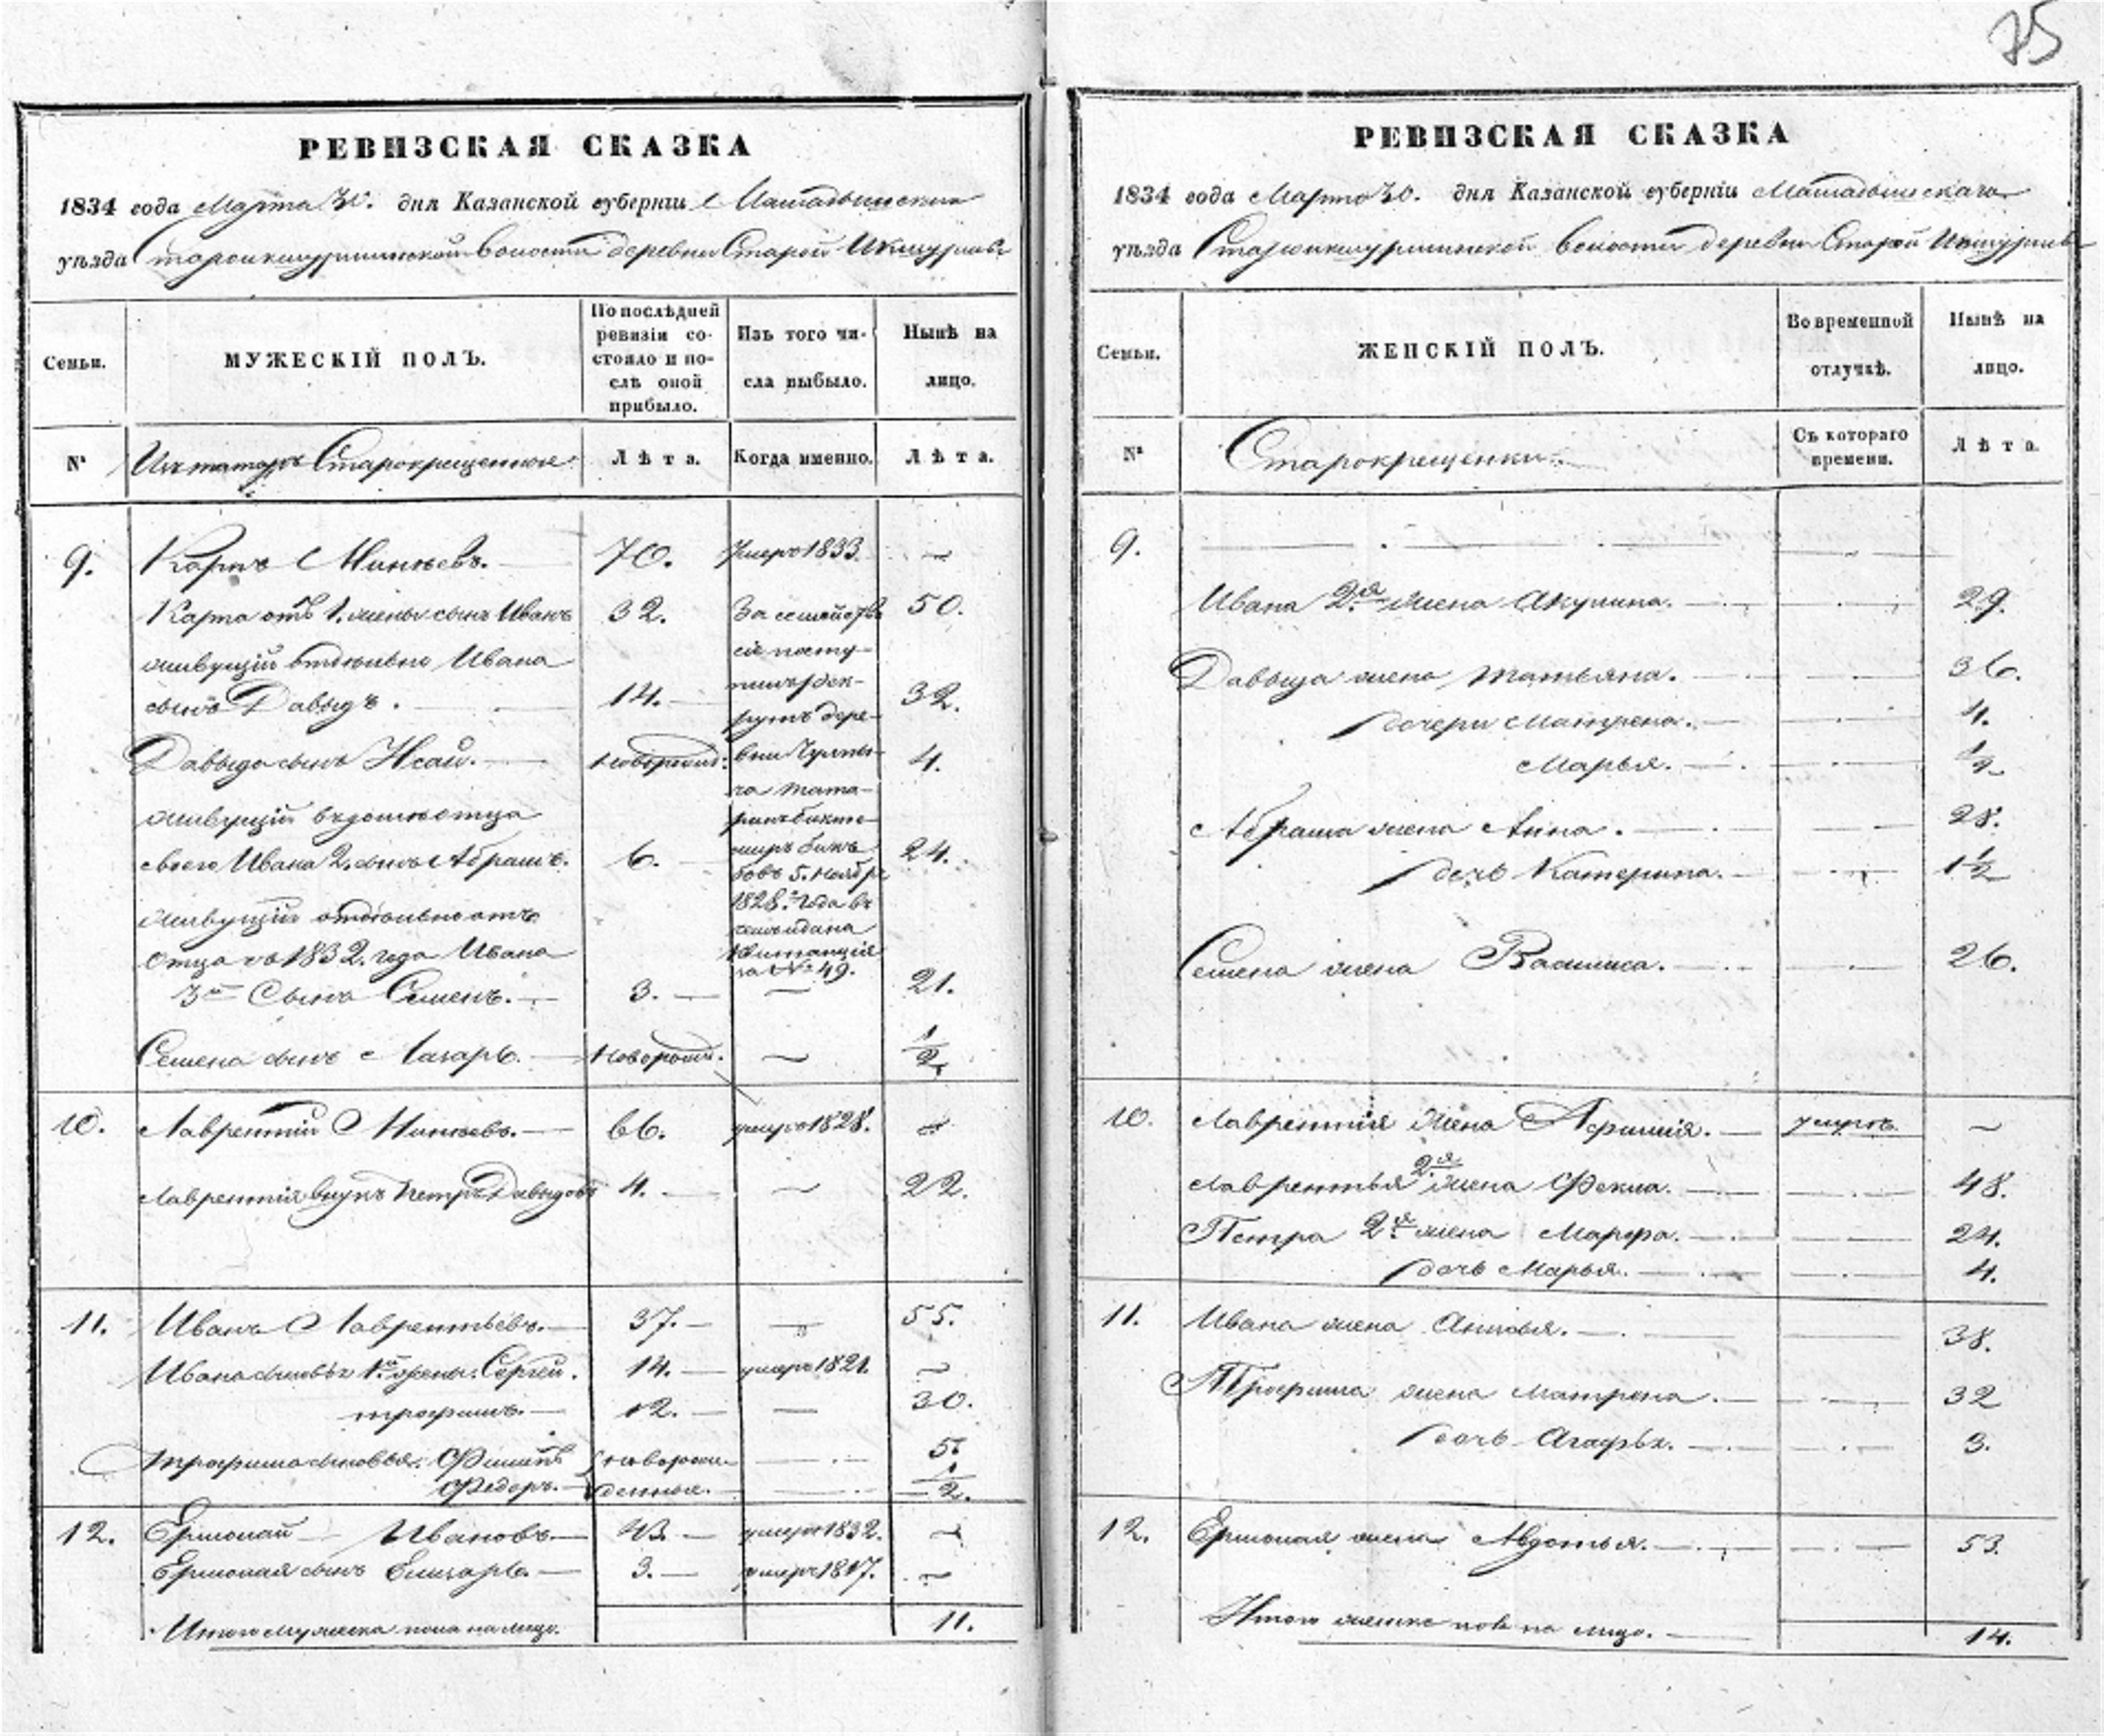 75
РЕВИЗСКАЯ СКАЗКА
1834 года Марта 30. дня Казанской губерніи Мамадышскаго
уѣзда Староикшурминской волости деревни Старой Икшурмы
Семьи.
МУЖЕСКІЙ ПОЛЪ.
По послѣдней ревизіи состояло и послѣ оной прибыло.
Изъ того числа выбыло.
Нынѣ на лицо.
№
Изъ татаръ Старокрещенные
Лѣта.
Когда именно.
Лѣта.
9. Карпъ Минѣевъ. 70. Умеръ 1833.
Карпа отъ 1. жены сынъ Иванъ 32. 50.
живущій отдѣльно Ивана
сынъ Давыдъ. 14. 32.
Давыда сынъ Исай. новорожд: 4.
живущій въ домѣ отца
своего Ивана 2. сынъ Абрамъ. 6. 24.
живущій отдѣльно отъ
отца съ 1832. года Ивана
3й Сынъ Семенъ. 3. 21.
Семена сынъ Лазарь. новорожд. 1/2
За семейство
сіе посту-
пилъ рек-
рутъ дере-
вни
тата-
ринъ
5. Ноябр
1828. года въ
чемъ и дана
Квитанція
за № 49.
10. Лаврентій Минѣевъ. 66. умеръ 1828.
Лаврентія внукъ Петръ Давыдовъ 4. 22.
11. Иванъ Лаврентьевъ. 37. 55.
Ивана сыновья 1й жены. Сергей. 14. умеръ 1821.
трофимъ. 12. 30.
трофима сыновья. Филипъ новорож- 5.
Федоръ. денные. 1/2.
12. Ермолай Ивановъ. 43. умеръ 1832.
Ермолая сынъ Елизаръ. 3. умеръ 1817.
Итого мужеска пола на лицо. 11.
РЕВИЗСКАЯ СКАЗКА
1834 года Марта 30. дня Казанской губерніи Мамадышскаго
уѣзда Староикшурминской волости деревни Старой Икшурмы
Семьи.
ЖЕНСКІЙ ПОЛЪ.
Во временной отлучкѣ.
Нынѣ на лицо.
№
Старокрещенки
Съ котораго времени.
Лѣта.
9.
Ивана 2я жена Акулина. 29.
Давыда жена татьяна. 36.
дочери Матрена. 4.
Марья. 1/2
Абрама жена Анна. 28.
дочь Катерина. 1 1/2
Семена жена Василиса. 26.
10. Лаврентія жена умерла.
Лаврентья 2я жена Фекла. 48.
Петра 2я жена Марфа. 24.
дочь Марья. 4.
11. Ивана жена 38.
Трофима жена Матрена. 32
дочь Агафья. 3.
12. Ермолая жена Авдотья. 53.
Итого женска пола на лицо. 14.